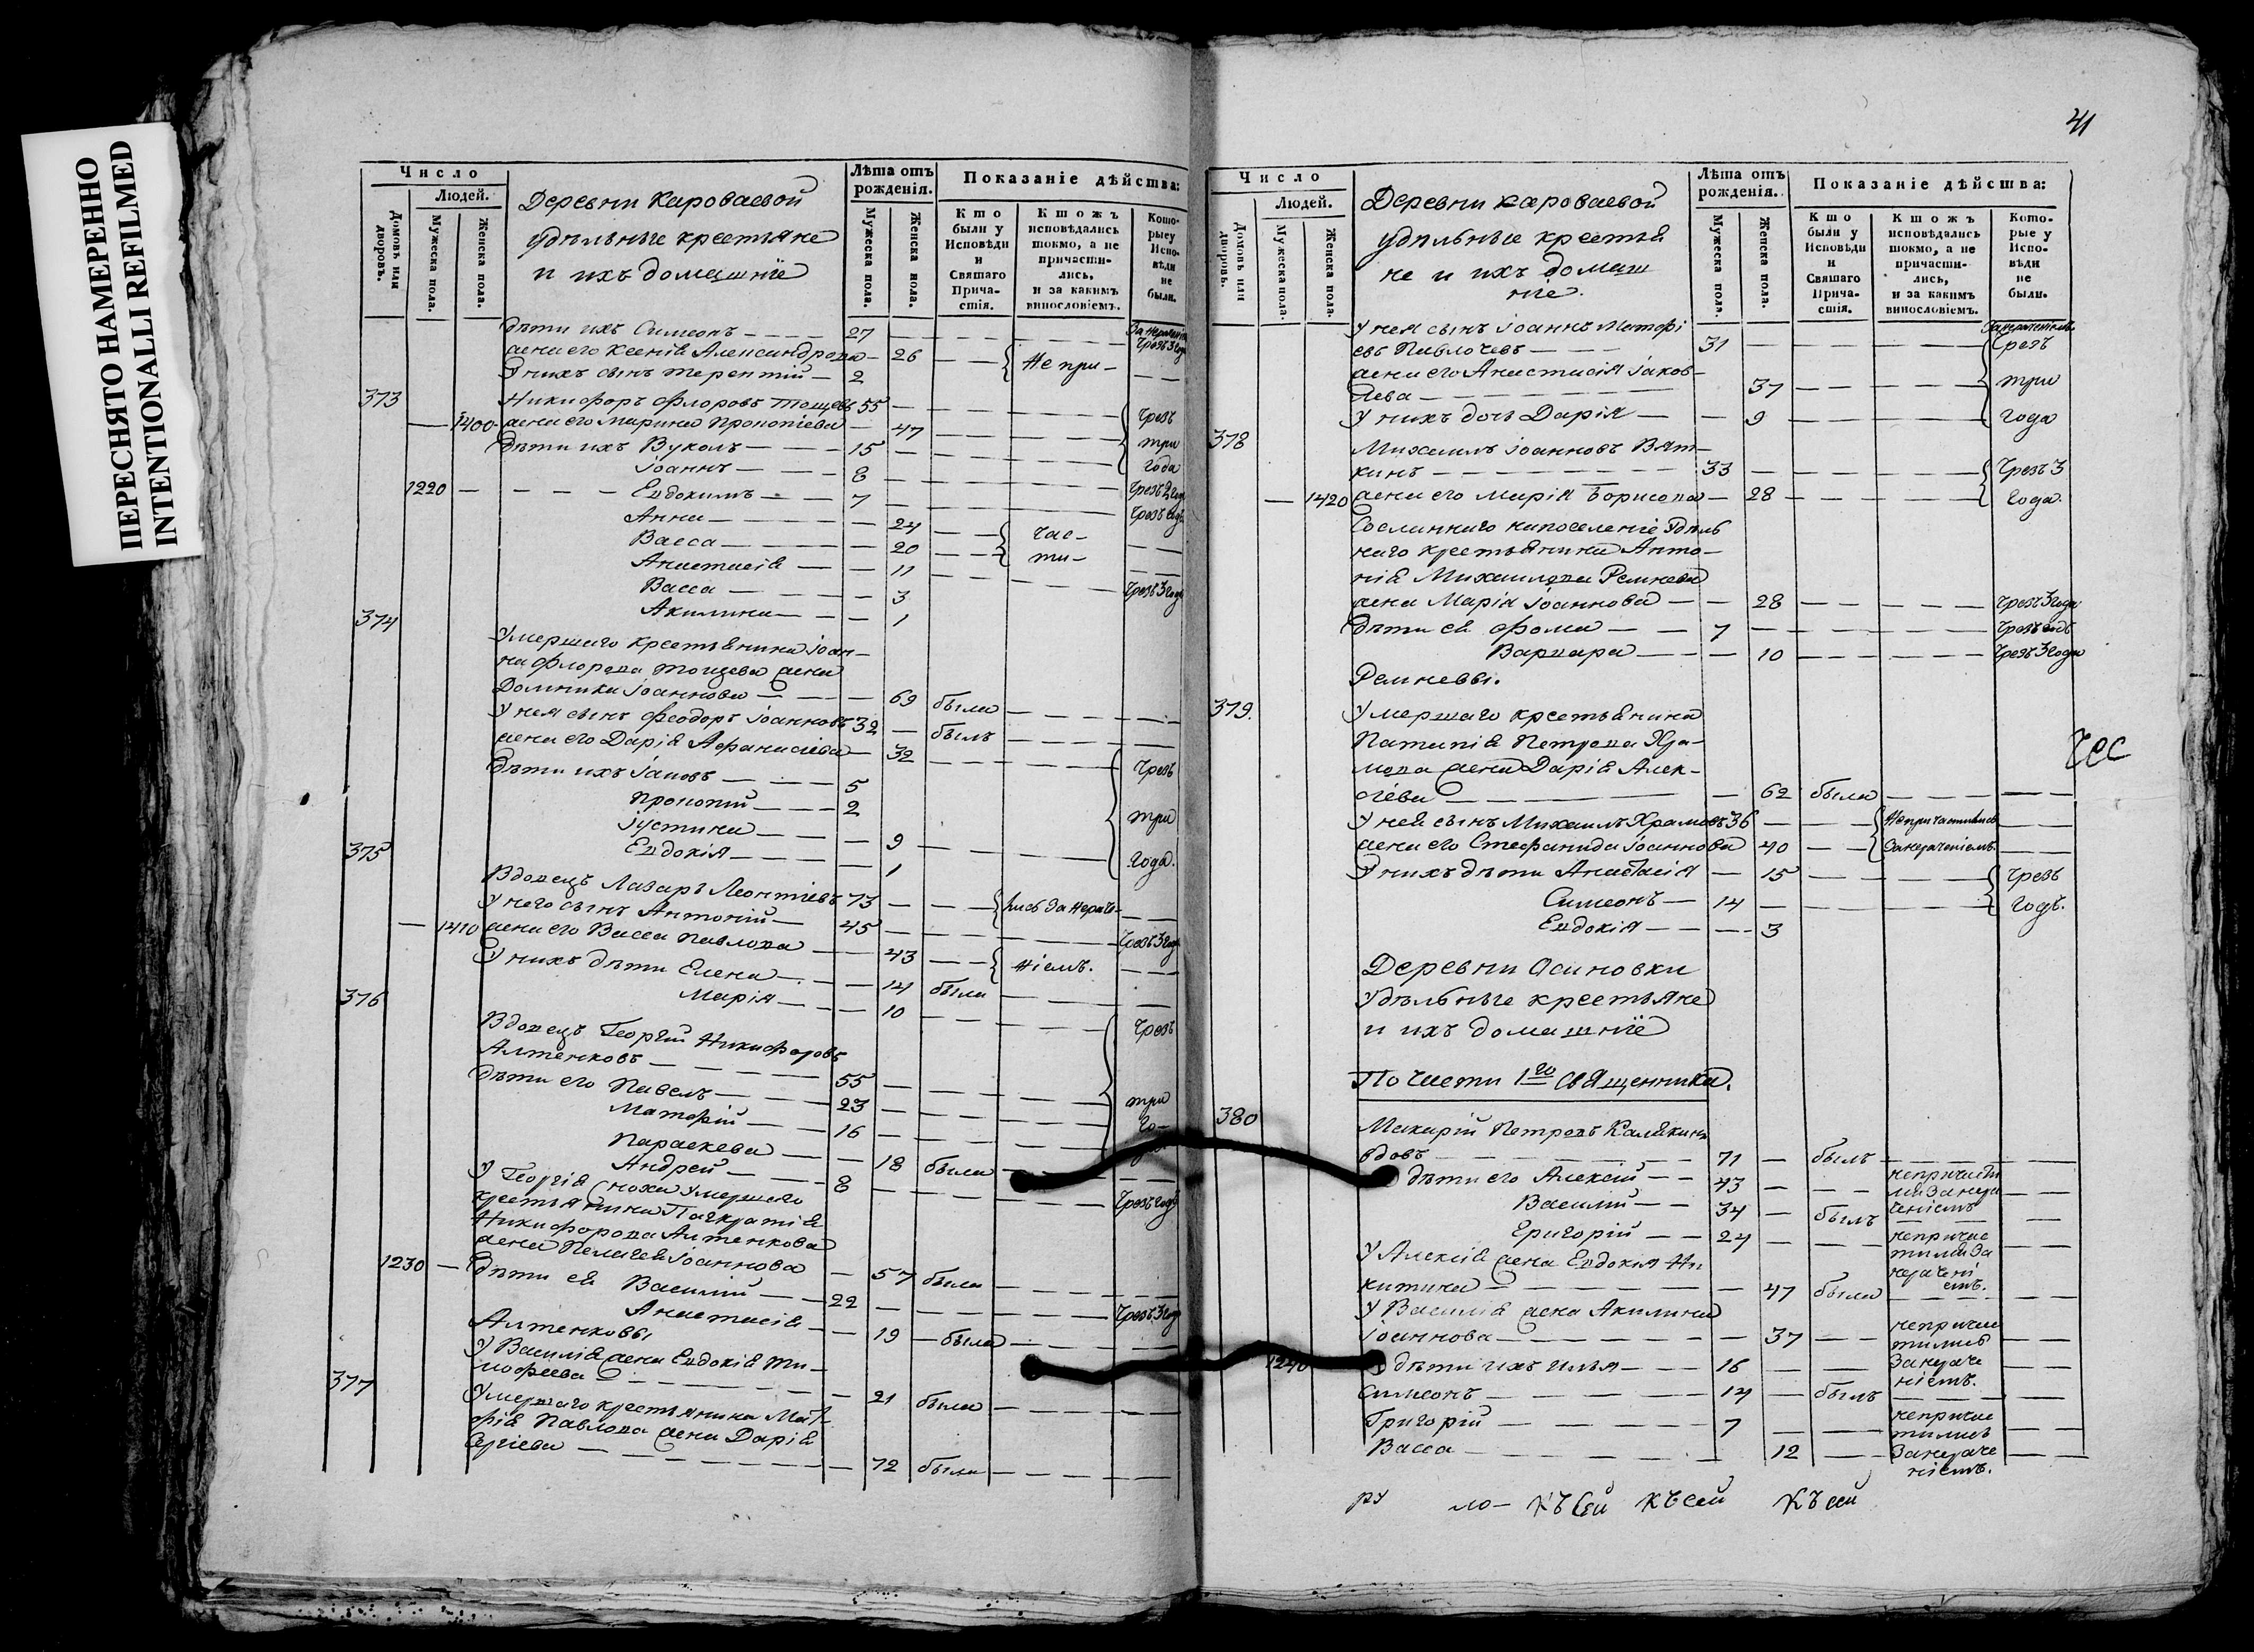 ПЕРЕСНЯТО НАМЕРЕННО
INTENTIONALLI REFILMED
Число
Людей.
Домовъ или дворовъ.
Мужеска пола.
Женска пола.
Деревни Кароваевой
удѣльные крестьяне
и ихъ домашніе
Лѣта отъ рожденія.
Мужеска пола.
Женска пола.
Показаніе дѣйства:
Кто были у Исповѣди и Святаго Причастія.
Ктожъ исповѣдались токмо, а не причастились, и за какимъ винословіемъ.
Которые у Исповѣди не были.
дѣти ихъ Симеонъ 27
жена его Ксенія Александрова 26 Чрезъ 3 года
У нихъ сынъ Терентій 2 Не при-
373 Никифоръ Флоровъ Тощевъ 55 Чрезъ
1400 жена его Марина Прокопіева 47 три
дѣти ихъ Вуколъ 15 года
Іоаннъ 8
1220 Евдокимъ 7
Анна 24 час-
Васса 20 ти-
Анастасія 11 Чрезъ 3 года
Васса 3
Акилина 1
374 Умершаго крестьянина Іоан-
на Флорова Тощева жена
Домника Іоаннова 69 была
У нея сынъ Феодоръ Іоанновъ 32 былъ
жена его Дарія Афанасіева 32 Чрезъ
дѣти ихъ Іаковъ 5
Прокопій 2 три
Іустина 9
Евдокія 1 года.
375 Вдовецъ Лазарь Леонтіевъ 73 лись за нераче-
У него сынъ Антоній 45 Чрезъ 3 года
1410 жена его Васса Павлова 43 ніемъ.
У нихъ дѣти Елена 14 была
Марія 10 Чрезъ
376 Вдовецъ Георгій Никифоровъ
Алтенковъ 55
дѣти его Павелъ 23 три
Матфій 16 го-
Параскева 18 была
Андрей 8 Чрезъ годъ
У Георгія сноха умершаго
крестьянина Панкратія
Никифорова Алтенкова
жена Пелагея Іоаннова 57 была
1230 дѣти ея Василій 22 Чрезъ 3 года
Анастасія 19 была
Алтенковы
У Василія жена Евдокія Ти-
мофеева 21 была
377 Умершаго крестьянина Мат-
фія Павлова жена Дарія
Сергіева 72 была
41
Число
Людей.
Домовъ или дворовъ.
Мужеска пола.
Женска пола.
Деревни Кароваевой
удѣльные крестья
не и ихъ домаш
ніе.
Лѣта отъ рожденія.
Мужеска пола.
Женска пола.
Показаніе дѣйства:
Кто были у Исповѣди и Святаго Причастія.
Ктожъ исповѣдались токмо, а не причастились, и за какимъ винословіемъ.
Которые у Исповѣди не были.
У нея сынъ Іоаннъ Матфі
евъ Павлочевъ 31 Чрезъ
жена его Анастасія Іаков-
лева 37 три
У нихъ дочь Дарія 9 года
378 Михаилъ Іоанновъ Вят-
кинъ 33 Чрезъ 3
1420 жена его Марія Борисова 28 года.
Сосланнаго на поселеніе удѣль
наго крестьянина Анто-
нія Михаилова Ремнева
жена Марія Іоаннова 28 Чрезъ 3 года
дѣти ея Фома 7 Чрезъ годъ
Варвара 10 Чрезъ 3 года
Ремневы.
379. Умершаго крестьянина
Патапія Петрова Хра-
мова жена Дарія Алек-
сіева 62 была
У нея сынъ Михаилъ Храмовъ 36 Не причастились
жена его Стефанида Іоаннова 40 за нераченіемъ.
У нихъ дѣти Анастасія 15 Чрезъ
Симеонъ 14 годъ.
Евдокія 3
чес
Деревни Асиновки
Удѣльные крестьяне
и ихъ домашніе
По части 1го священника.
380 Макарій Петровъ Калякинъ
вдовъ 71 былъ
дѣти его Алексій 43
Василій 34 былъ
Григорій 24
У Алексія жена Евдокія Ни
китина 47 была
У Василія жена Акилина
Іоаннова 37
1240 дѣти ихъ Илья 16
Симеонъ 14 былъ
Григорій 7
Васса 12 за нераче
ніемъ.
ру ло- къ сей къ сей къ сей